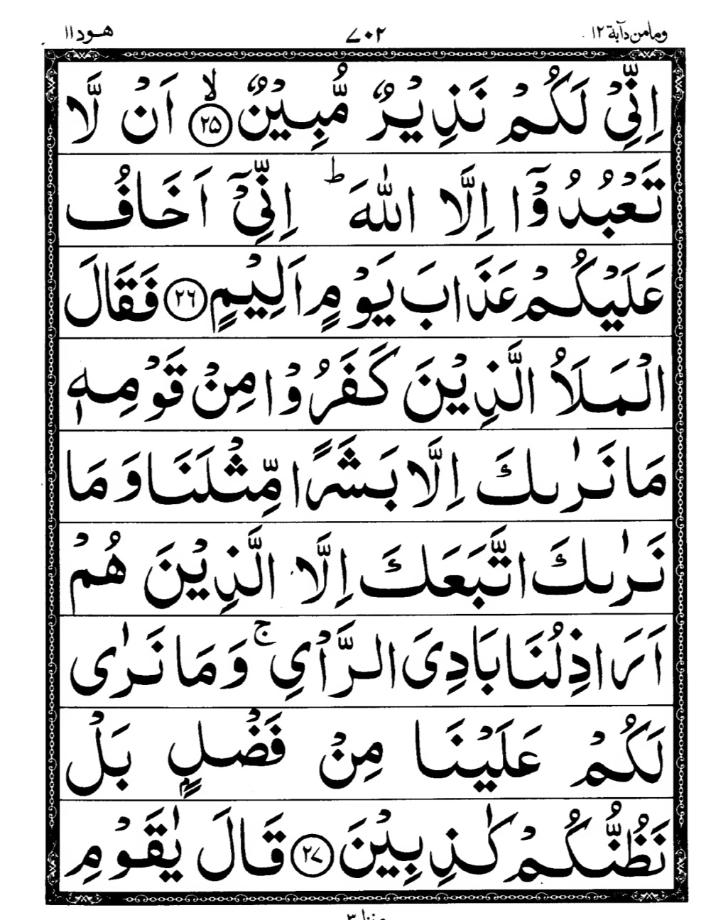 وما من دآبة ١٢ ٧٠٢ هود ١١
اِنِّیْ لَكُمْ نَذِیْرٌ مُّبِیْنٌ ۙ﴿۲۵﴾ اَنْ لَّا
تَعْبُدُوْۤا اِلَّا اللّٰهَ ؕ اِنِّیْۤ اَخَافُ
عَلَیْكُمْ عَذَابَ یَوْمٍ اَلِیْمٍ ﴿۲۶﴾ فَقَالَ
الْمَلَاُ الَّذِیْنَ كَفَرُوْا مِنْ قَوْمِهٖ
مَا نَرٰىكَ اِلَّا بَشَرًا مِّثْلَنَا وَ مَا
نَرٰىكَ اتَّبَعَكَ اِلَّا الَّذِیْنَ هُمْ
اَرَاذِلُنَا بَادِیَ الرَّاْیِ ۚ وَ مَا نَرٰی
لَكُمْ عَلَیْنَا مِنْ فَضْلٍۭ بَلْ
نَظُنُّكُمْ كٰذِبِیْنَ ﴿۲۷﴾ قَالَ یٰقَوْمِ